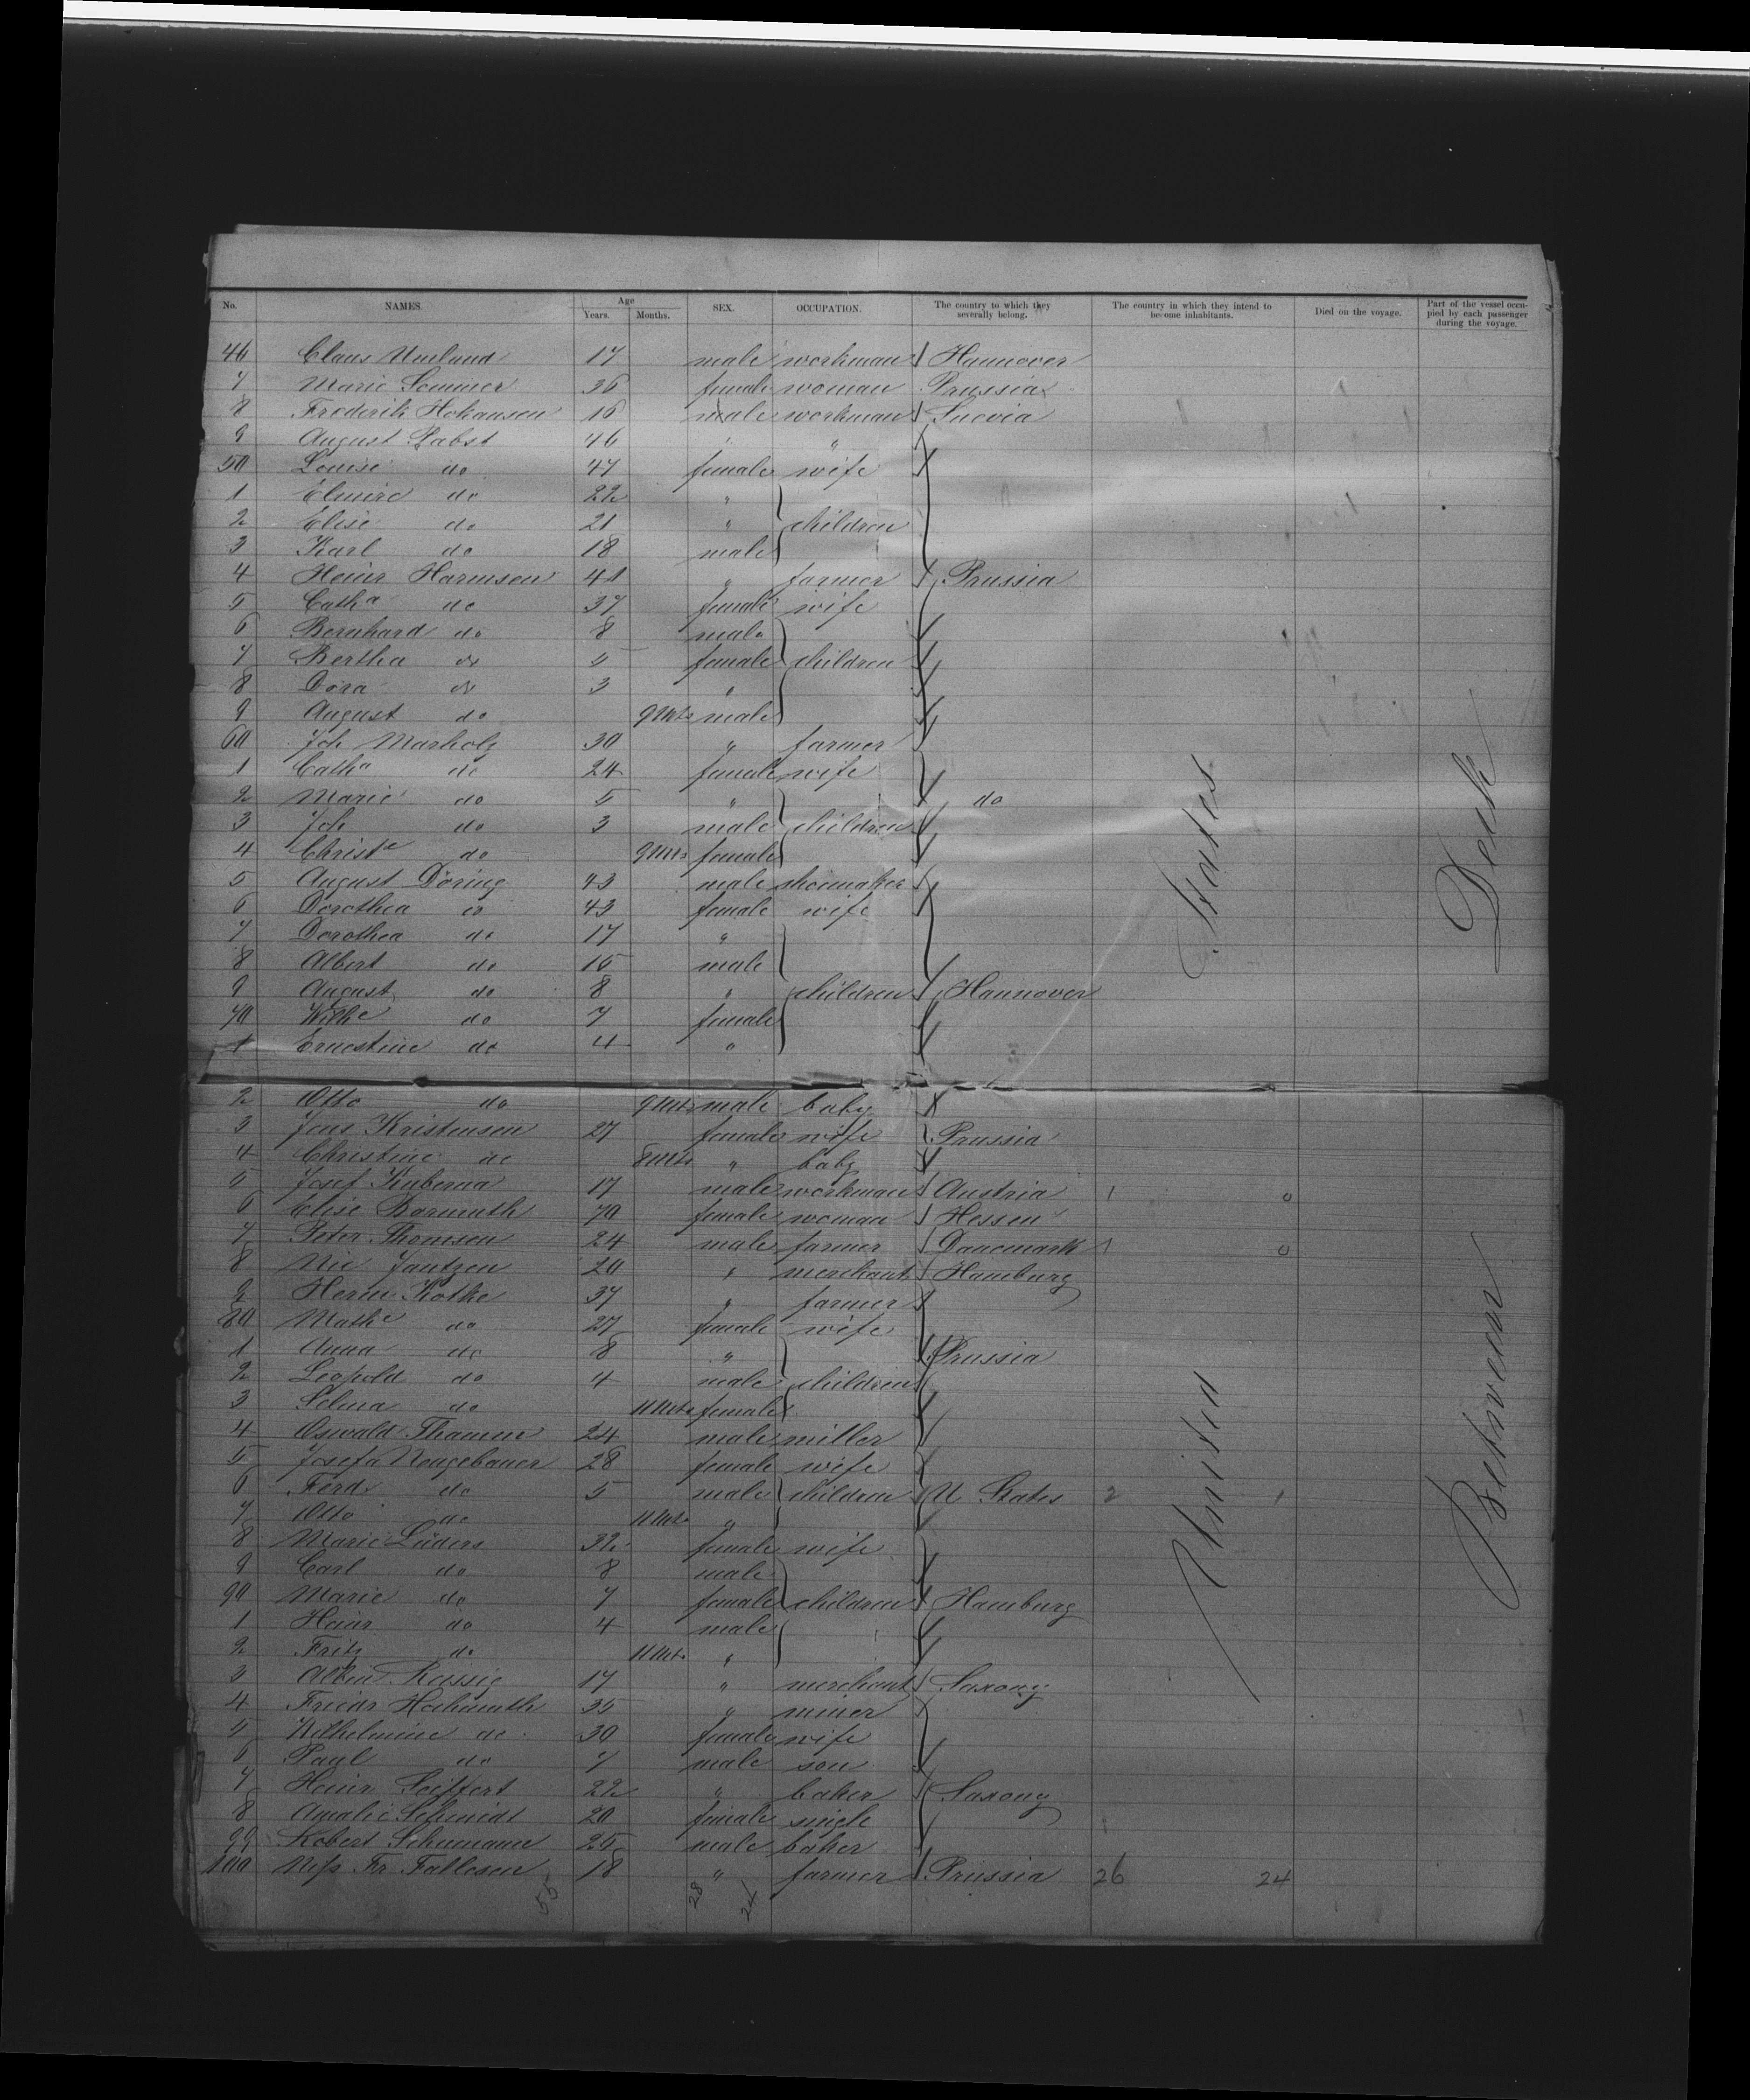 No. NAMES. Age Years. Months. SEX. OCCUPATION. The country to which they severally belong. The country in which they intend to become inhabitants. Died on the voyage. Part of the vessel occupied by each passenger during the voyage.
46 Claus 17 male workman Hannover
7 Marie Sommer 36 female woman Prussia
8 Frederik Hokansen 16 male workman Suevia
9 August Pabst 46 " "
50 Louise do 47 female wife
1 Elmire do 22 "
2 Elise do 21 " children
3 Karl do 18 male
4 Heinr Harmsen 41 " farmer Prussia
5 Catha do 37 female wife
6 Bernhard do 8 male
7 Bertha do 5 female children
8 Dora do 3 "
9 August do 9 Mts male
60 Joh Marholz 30 " farmer
1 Catha do 24 female wife
2 Marie do 5 " do
3 Joh do 3 male children
4 Christe do 9 Mts female
5 August Döring 43 male shoemaker
6 Dorothea do 43 female wife
7 Dorothea do 17 "
8 Albert do 15 male
9 August do 8 " children Hannover
70 Wilhe do 7 female
1 Ernestine do 4 "
2 Otto do 9 Mts male baby
3 Jens Kristensen 27 female wife Prussia
4 Christine do 8 Mts " baby
5 Josef Kuberna 17 male workman Austria 1 0
6 Elise Barmuth 70 female woman Hessen
7 Peter Thomsen 24 male farmer Danemark 1 0
8 Nic Jantzen 20 " merchant Hamburg
9 Herm Kothe 37 " farmer
80 Mathe do 27 female wife
1 Anna do 8 " Prussia
2 Leopold do 4 male children
3 Selma do 11 Mts female
4 Oswald Thamm 24 male miller
5 Josefa Neugebauer 28 female wife
6 Ferd do 5 male children U States 2 1
7 Otto do 11 Mts "
8 Marie Lüders 32 female wife
9 Carl do 8 male
90 Marie do 7 female children Hamburg
1 Heinr do 4 male
2 Fritz do 11 Mts "
3 Albin Rossig 17 " merchant Saxony
4 Friedr Hochmuth 35 " miner
5 Wilhelmine do 30 female wife
6 Paul do 7 male son
7 Heinr Seiffert 22 " baker Saxony
8 Amalie Schmidt 20 female single
99 Robert Schumann 25 male baker
100 Niss Fr Fallesen 18 " farmer Prussia 26 24
55 28 24
United States
Between Deck